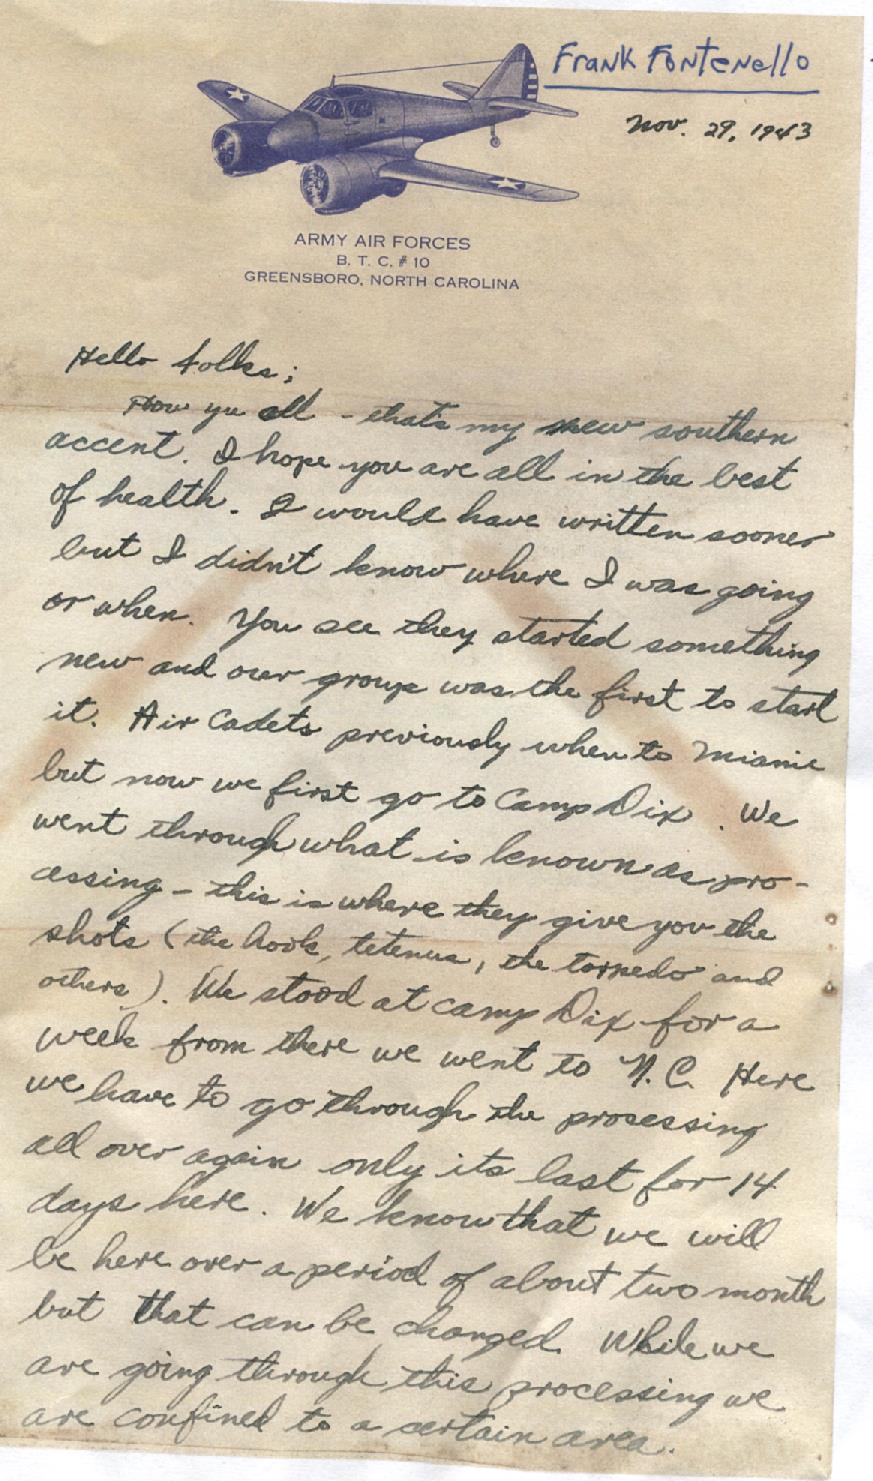 Frank Fontenello
Nov. 29, 1943
ARMY AIR FORCES
B. T. C. # 10
GREENSBORO, NORTH CAROLINA
Hello folks;
How yu all - that's my new southern
accent. I hope you are all in the best
of health. I would have written sooner
but I didn't know where I was going
or when. You see they started something
new and our group was the first to start
it. Air Cadets previously when to Miami
but now we first go to Camp Dix. We
went through what is known as pro-
cessing - this is where they give you the
shots (the hook, tetenus, the torpedo and
others). We stood at camp Dix for a
week from there we went to N.C. Here
we have to go through the prosessing
all over again only its last for 14
days here. We know that we will
be here over a period of about two month
but that can be changed. While we
are going through this processing we
are confined to a certain area.